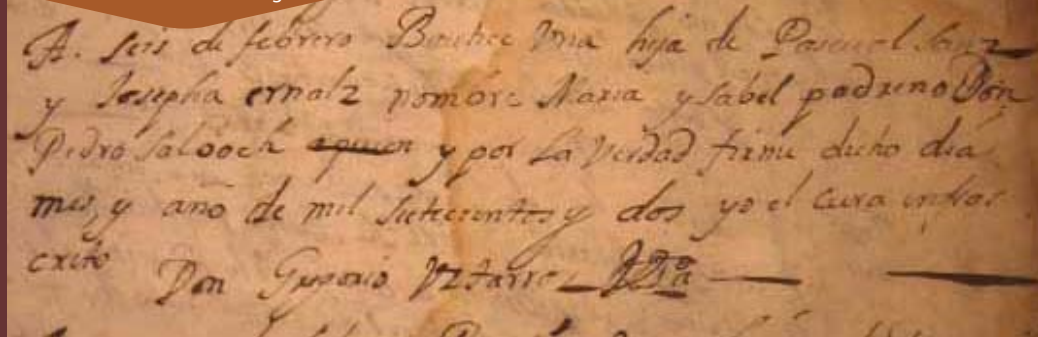 A. seis de febrero Bautice Vna hija de Pascual Sanz
y Josepha ernalz nombre Maria ysabel padrino Don
Pedro y por La Verdad firme dicho dia
mes, y año de mil setecientos y dos yo el cura infras
crito
Don Gregorio